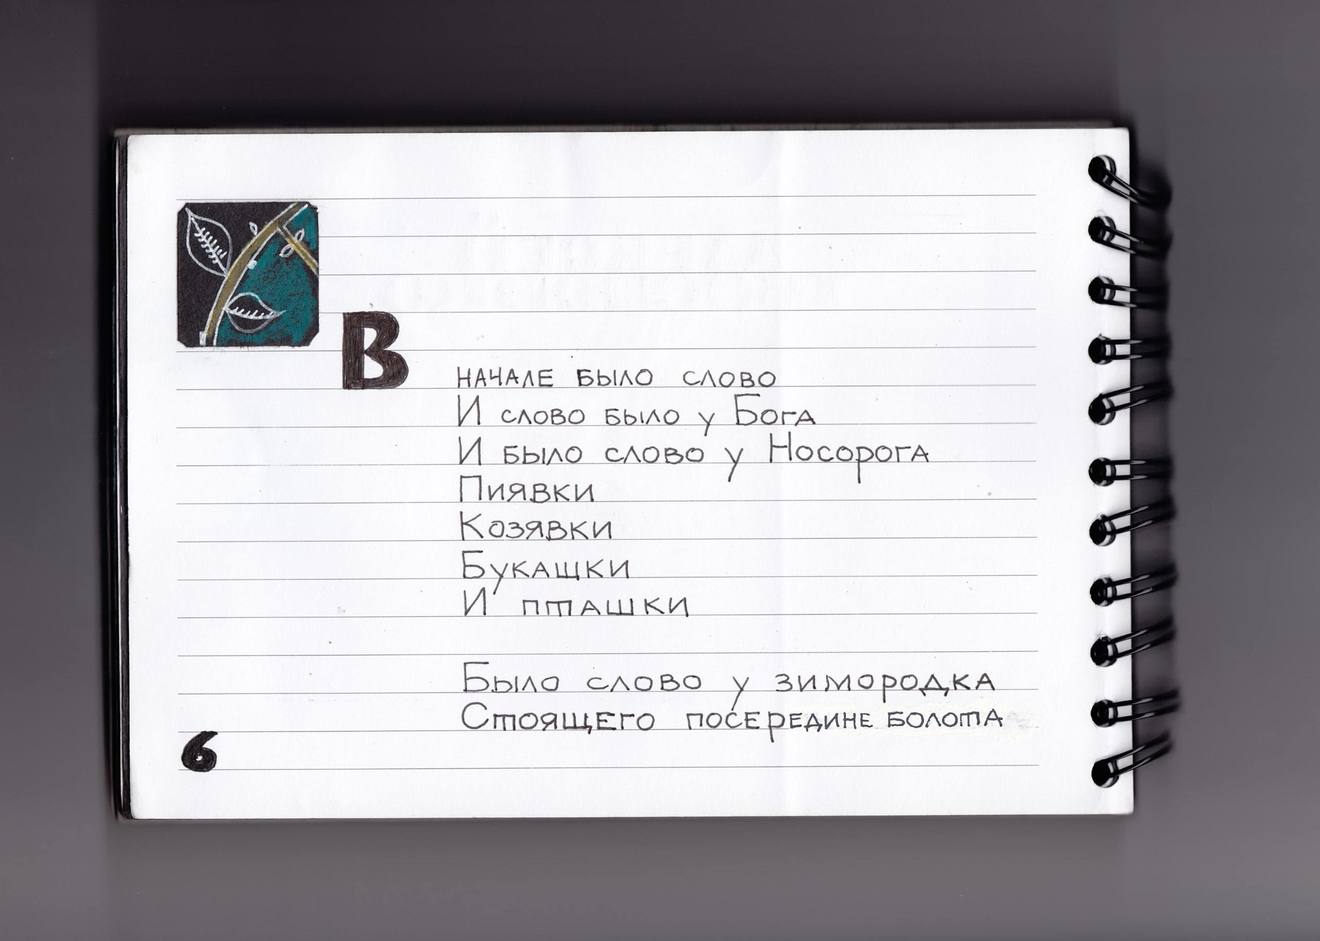 В НАЧАЛЕ БЫЛО СЛОВО
И СЛОВО БЫЛО У БОГА
И БЫЛО СЛОВО У НОСОРОГА
ПИЯВКИ
КОЗЯВКИ
БУКАШКИ
И ПТАШКИ
БЫЛО СЛОВО У ЗИМОРОДКА
СТОЯЩЕГО ПОСЕРЕДИНЕ БОЛОТА
6